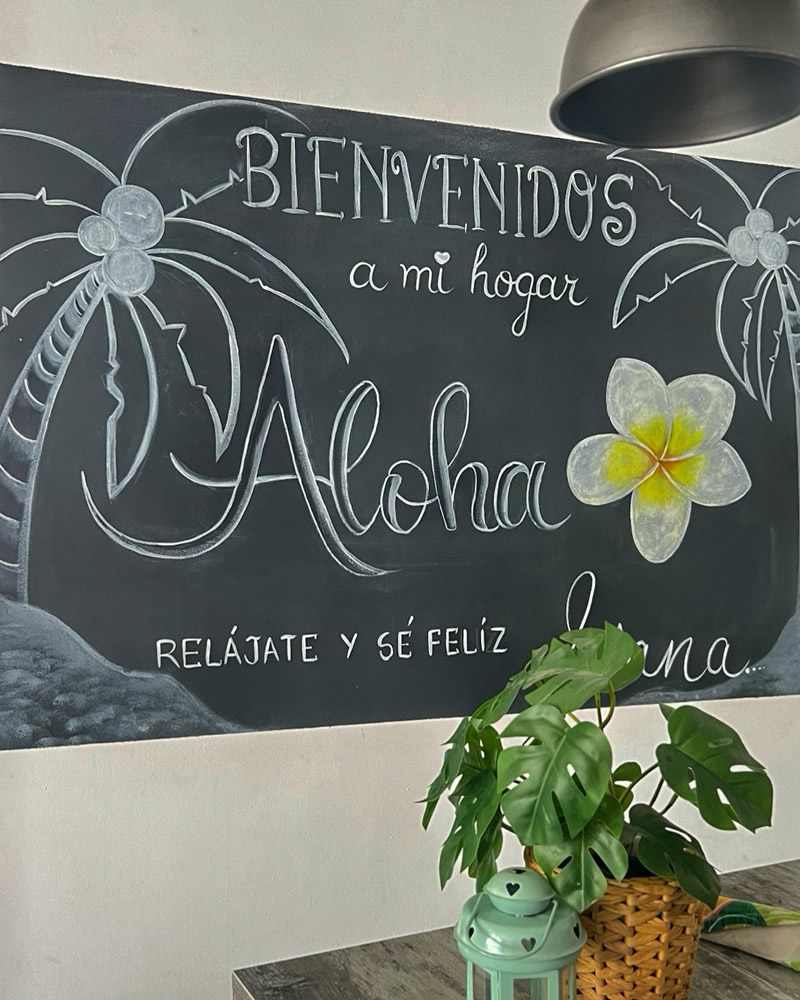 BIENVENIDOS
a mi hogar
Aloha
RELÁJATE Y SÉ FELÍZ